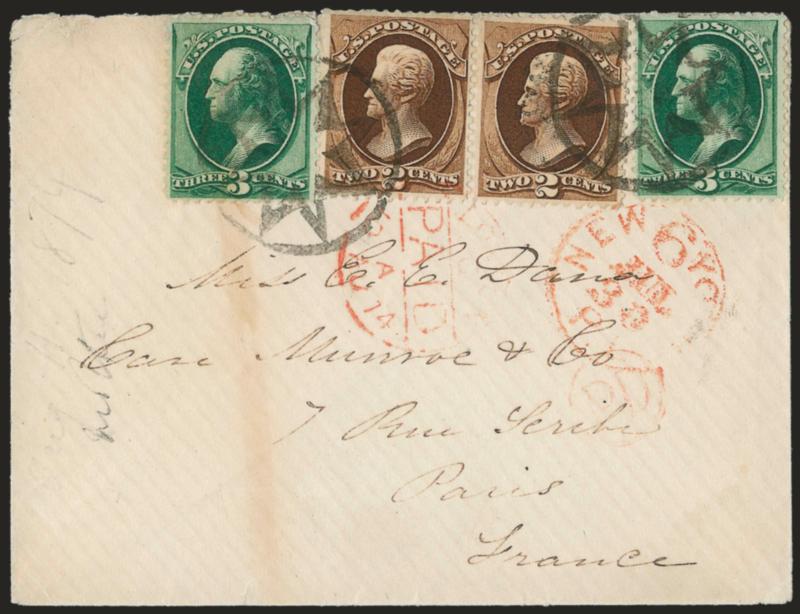 U.S. POSTAGE
THREE 3 CENTS
U.S. POSTAGE
TWO 2 CENTS
U.S. POSTAGE
TWO 2 CENTS
U.S. POSTAGE
THREE 3 CENTS
PAID
74
NEW YO
6
PD
Miss E. E. Dana
Care Munroe & Co
7 Rue Scribe
Paris
France
874